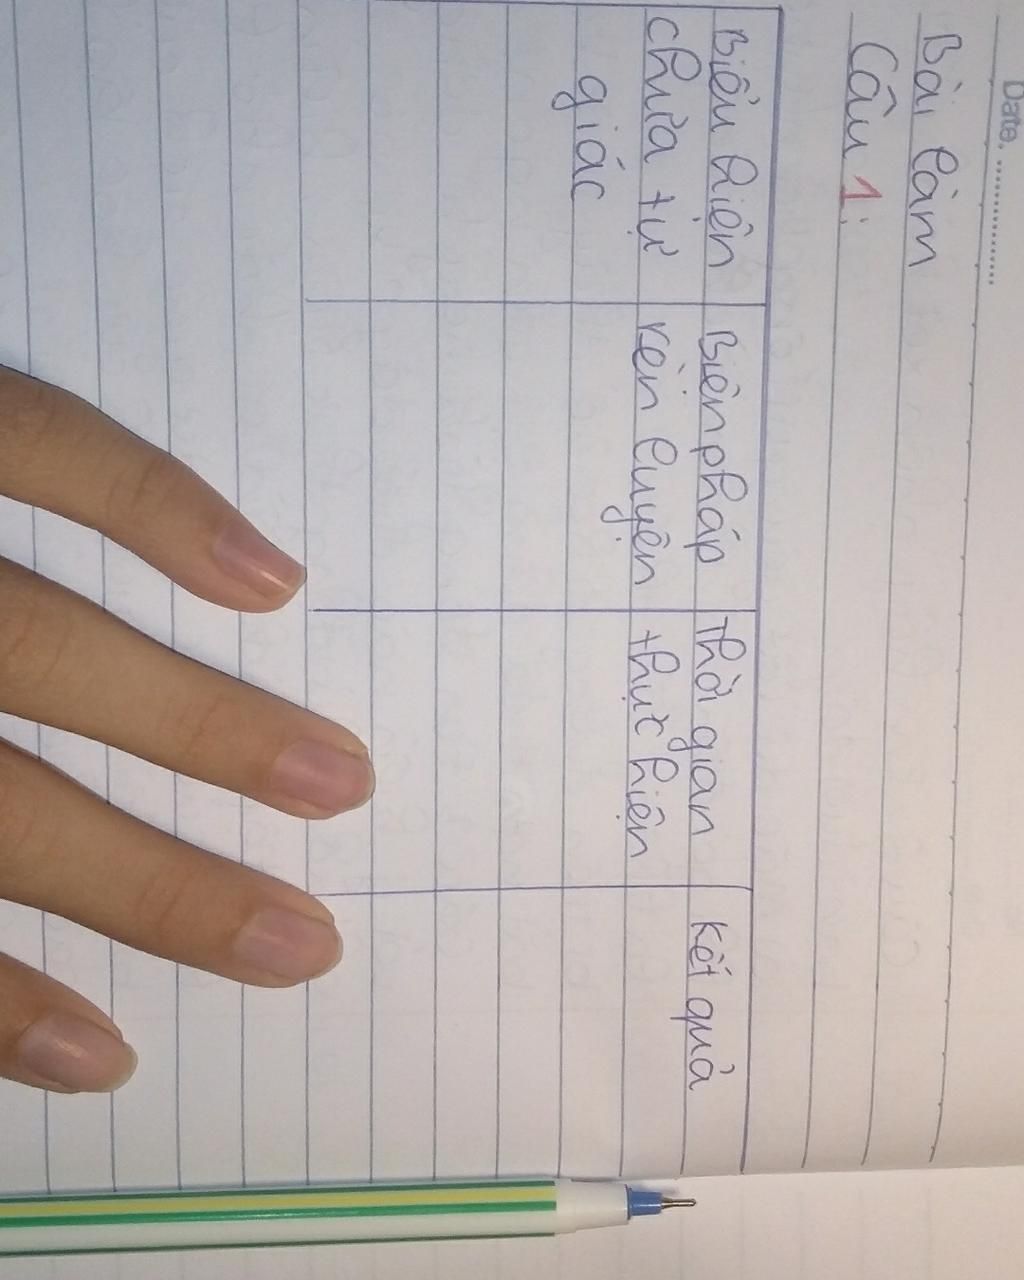 Date.
Bài làm
Câu 1:
Biểu hiện
chưa tự
giác
Biện pháp
rèn luyện
Thời gian
thực hiện
Kết quả